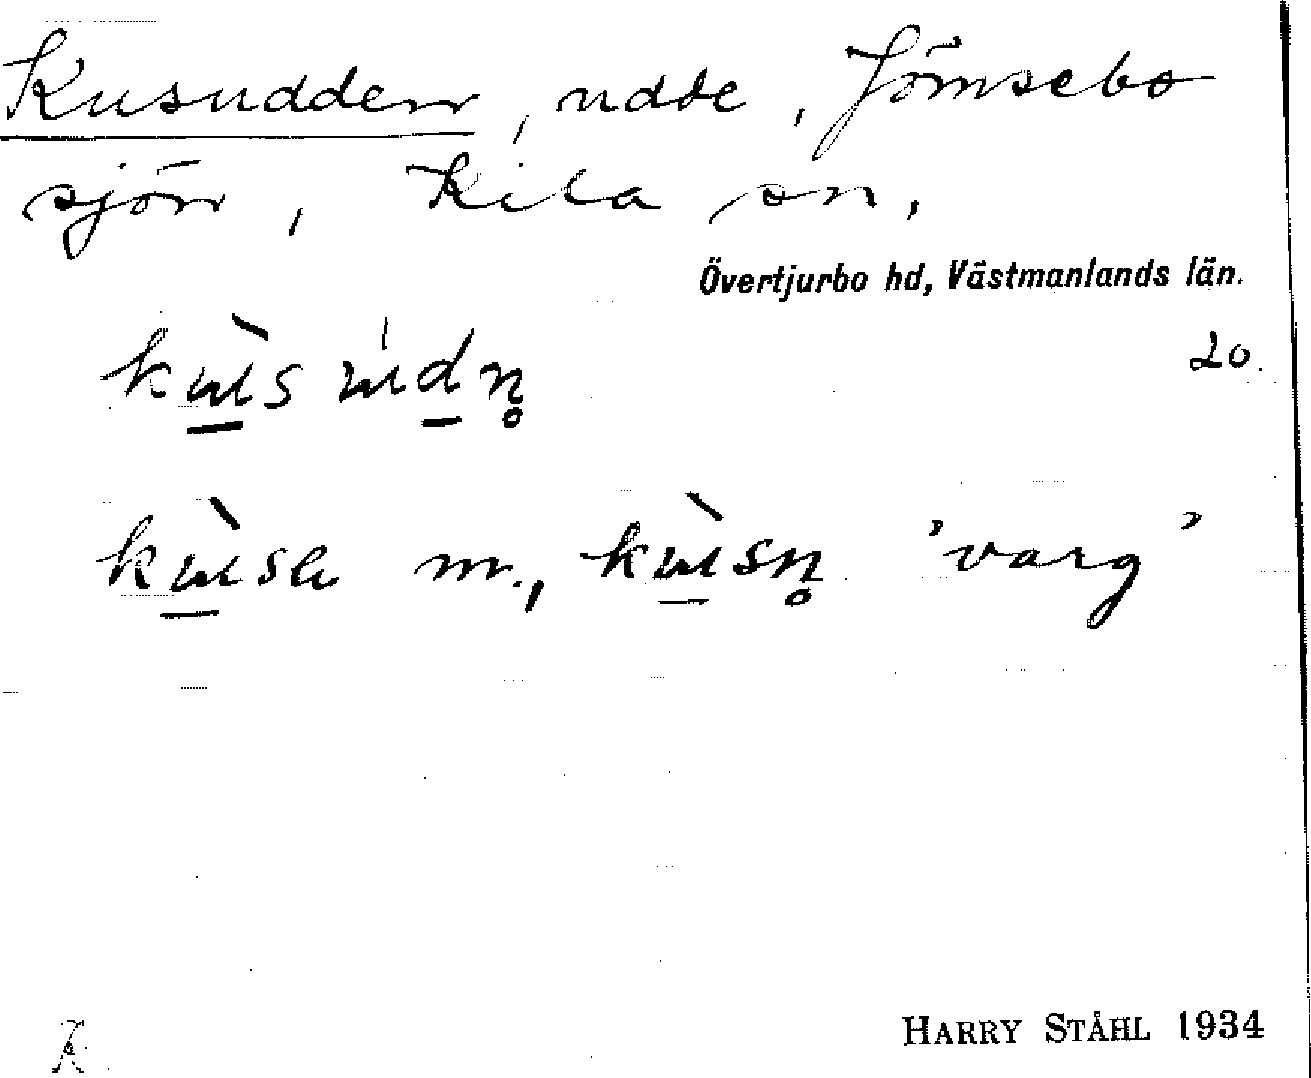 Kusudden, udde, Jömsebo
sjön, Kila sn,
Övertjurbo hd, Västmanlands län.
20.
kùs údn̥
kùsa m., kùsn̥ 'varg'
HARRY STÅHL 1934